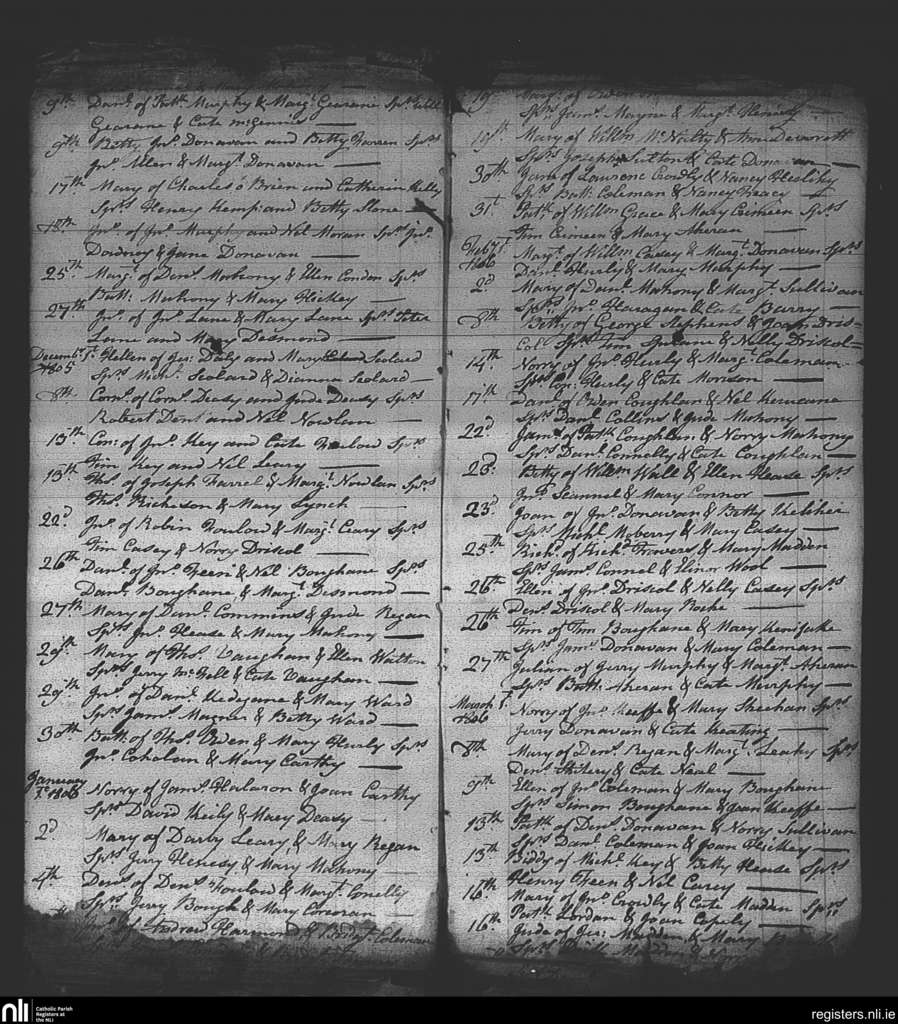 9th Danl of Patk Murphy & Margt Gearane Sprs Will
Gearane & Cate
9th Betty Jno Donavan and Betty Sprs
Jno Allen & Margt Donavan
17th Mary of Charles o Brien and Catherin Kelly
Sprs Henry Kemp and Betty Slone
18th Jno of Jno Murphy and Nel Moran Sprs Jno
Downey & Jane Donavan
25th Margt of Denl Mahony & Ellen Condon Sprs
Patk Mahony & Mary Hickey
27th Jno of Jno Lane & Mary Lane Sprs Peter
Lane and Mary Desmond
Decembr 1st 1805 Hellen of Jas Daly and Mary Scolard
Sprs Michl Scolard & Dianora Scolard
8th Corns of Corns Deasy and Jude Deasy Sprs
Robert Dent and Nel Nowlan
15th Con: of Jno Key and Cate Sprs
Tim Key and Nel Leary
15th Thos of Joseph Farrel & Margt Nowlan Sprs
Thos Richeson & Mary Lynch
22d Jno of Robin Foulow & Margt Ceary Sprs
Tim Casey & Norry Driscol
26th Danl of Jno Feen & Nel Boughane Sprs
Danl Boughane & Margt Desmond
27th Mary of Danl Commins & Jude Regan
Sprs Jno Hease & Mary Mahony
29th Mary of Thos Vaughan & Ellen Walton
Sprs Jerry & Cate Vaughan
29th Jno of Danl & Mary Ward
Sprs Jams Magner & Betty Ward
30th Patt: of Thos Owen & Mary Hurly Sprs
Jno Coholan & Mary Carthy
January 1st 1806 Norry of Jams Halaron & Joan Carthy
Sprs David Keily & Mary Deasy
2d Mary of Darby Leary & Mary Regan
Sprs Jerry Henesy & Mary Mahony
4th Denl of Denl Foulow & Margt Conelly
Sprs Jerry Bough & Mary Corcoran
Andrew Harmond & Bridgt Coleman
19 Margt of
Sprs Jams Mayne & Margt
19th Mary of Willm McNalty & Ann
Sprs Joseph Sutton & Cate Donavan
30th Jane of Laurence Crowly & Nancy
Sprs Patt: Coleman & Nancy
31st Patk of Willm Grace & Mary Eimeen Sprs
Tim Eimeen & Mary Aheran
Feby 1st 1806 Margt of Willm Casey & Margt Donavan Sprs
Danl Hurly & Mary Murphy
2d Mary of Danl Mahony & Margt Sullivan
Sprs Jno Haragan & Cate Barry
8th Betty of George Stephens & Joan Dris-
coll Sprs Tim & Nelly Driscol
14th Norry of Jno Hurly & Margt Coleman
Sprs Con: Hurly & Cate Morison
17th Danl of Owen Coughlan & Nel
Sprs Danl Collins & Jude Mahony
22d Jams of Patk Coughlan & Norry Mahony
Sprs Danl Connolly & Cate Coughlan
23: Betty of Willm Wall & Ellen Hease Sprs
Jno Scannel & Mary Connor
23d Joan of Jno Donavan & Betty Kelcher
Sprs Michl & Mary Casey
25th Richd of Richd Travers & Mary Madden
Sprs Jams Connel & Elinor Wool
26th Ellen of Jno Driscol & Nelly Casey Sprs
Denl Driscol & Mary Roche
26th Tim of Tim Boughane & Mary
Sprs Jams Donavan & Mary Coleman
27th Julian of Jerry Murphy & Margt Aheran
Sprs Patt: Aheran & Cate Murphy
March 1st 1806 Norry of Jno Keeffe & Mary Sheehan Sprs
Jerry Donavan & Cate Keating
8th Mary of Denl Regan & Margt Leahy Sprs
Denl & Cate Neal
9th Ellen of Jno Coleman & Mary Boughane
Sprs Simon Boughane & Joan Keeffe
13th Patk of Denl Donavan & Norry Sullivan
Sprs Danl Coleman & Joan Hickey
13th Biddy of Michl Key & Betty Hease Sprs
Henry Feen & Nel Carey
16th Mary of Jno Crowly & Cate Madden Sprs
Patk & Joan
16th Jude of Jas: Madden & Mary
Sprs Madden & Norry
nli
Catholic Parish
Registers at
the NLI
registers.nli.ie